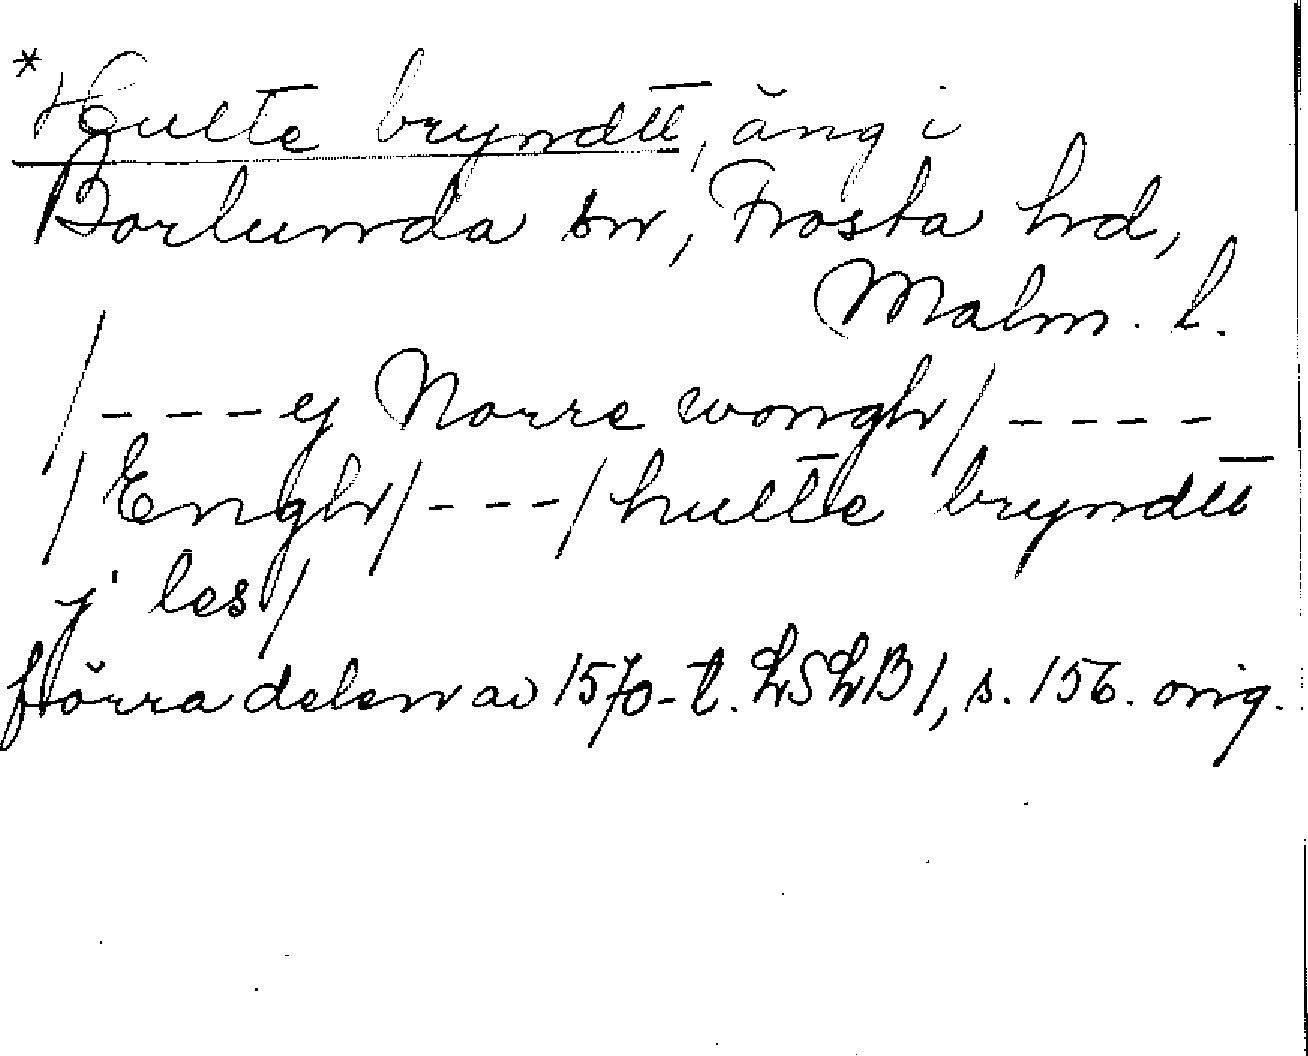 *Hulte bryndtt, äng i
Borlunda sn, Frosta hd,
Malm. l.
/----ej Norre wongh/----
/Engh/---/hulte bryndtt
j les/
förra delen av 1570-t. LSLB1, s. 156. orig.